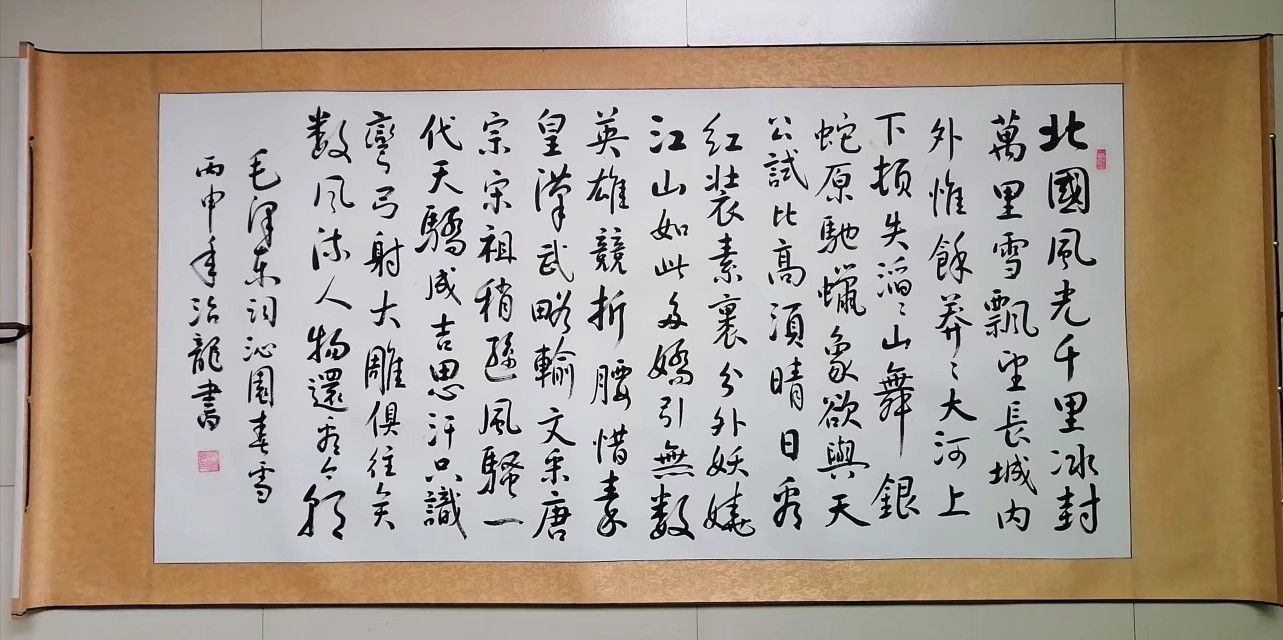 北國風光千里冰封
萬里雪飄望長城内
外惟餘莽〻大河上
下頓失滔〻山舞銀
蛇原馳蠟象欲與天
公試比高須晴日看
红裝素裹分外妖嬈
江山如此多嬌引無数
英雄競折腰惜秦
皇漢武略輸文采唐
宗宋祖稍遜風騷一
代天驕成吉思汗只識
彎弓射大雕俱往矣
数风流人物還看今朝
毛澤東詞沁園春雪
丙申年治龍書